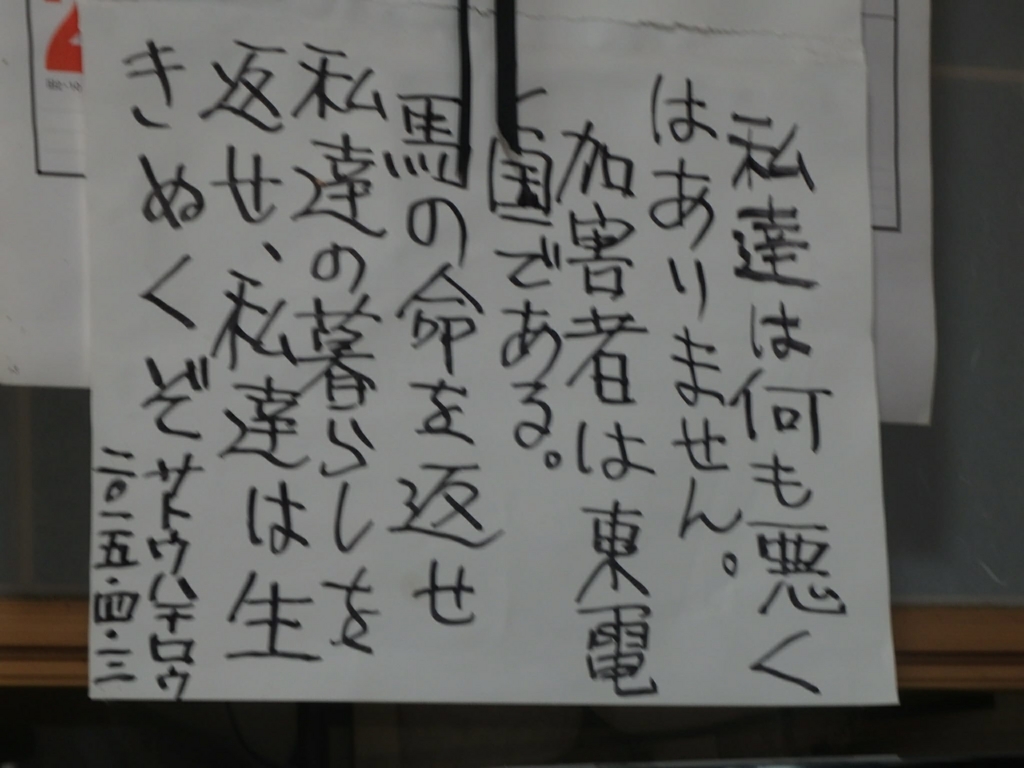 私達は何も悪く
はありません。
加害者は東電
と国である。
馬の命を返せ
私達の暮らしを
返せ、私達は生
きぬくぞ
サトウハチロウ
二〇一五・四・三